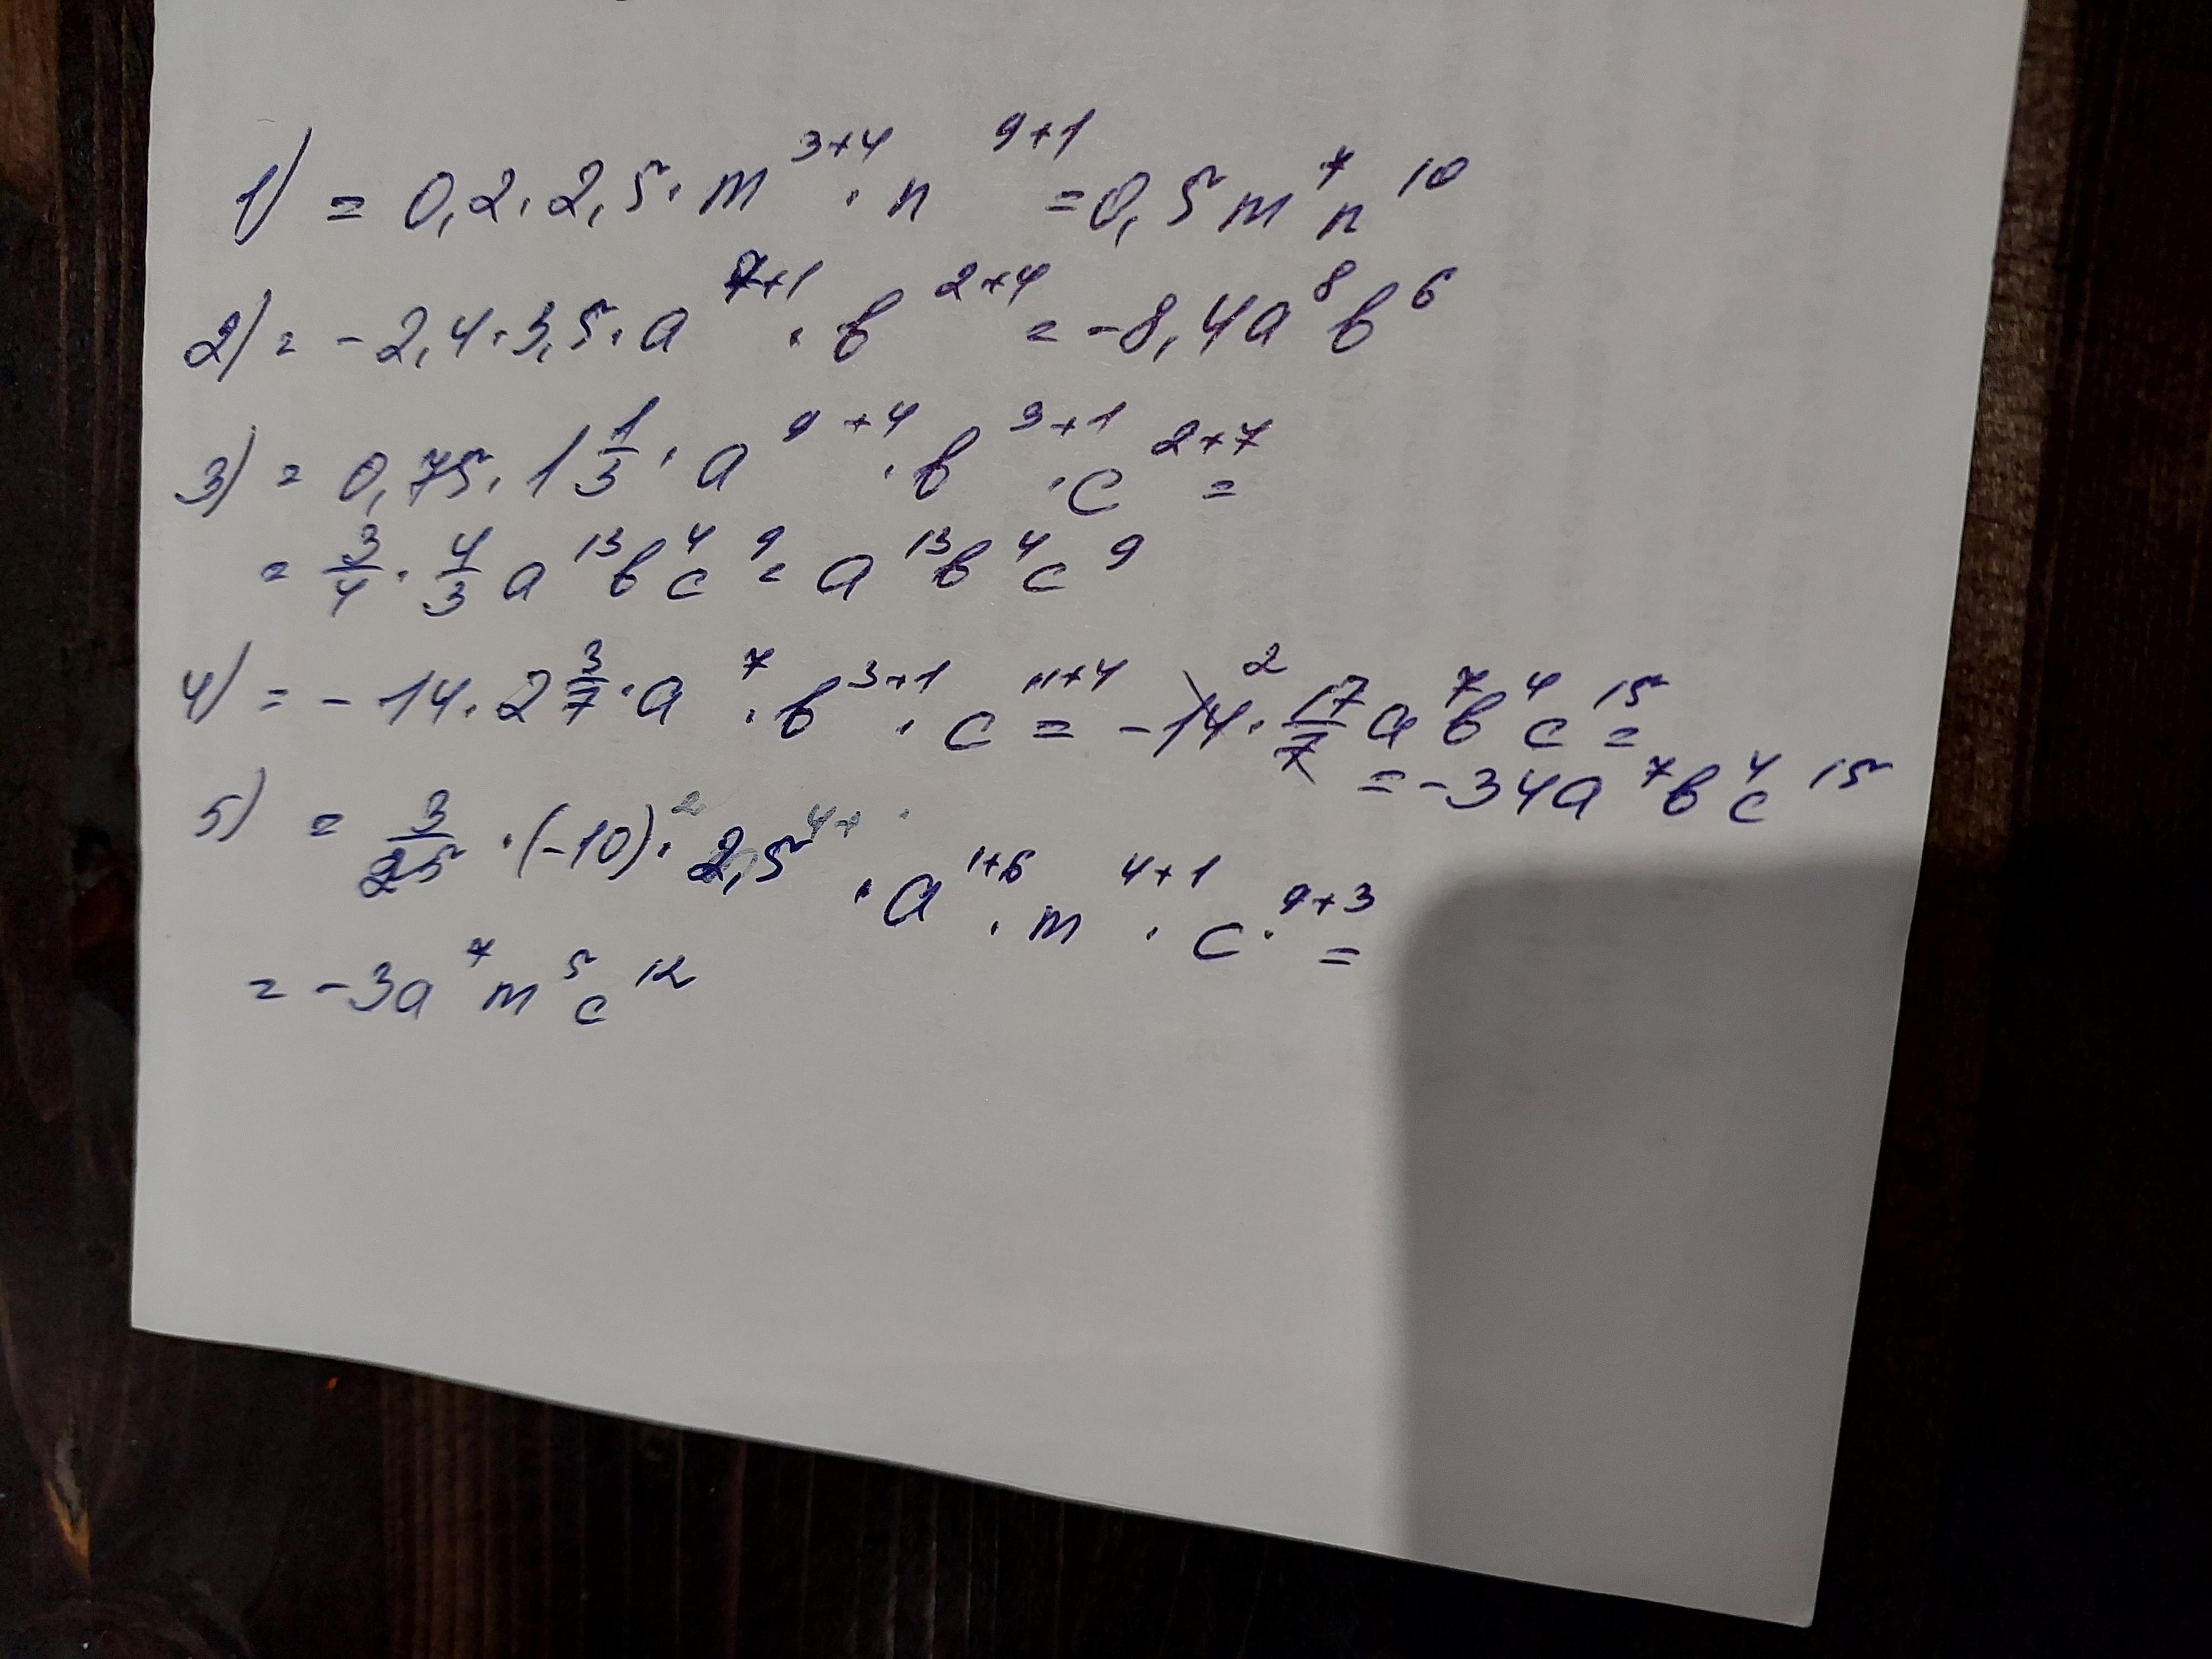 1) = 0,2 · 2,5 · m³⁺⁴ · n⁹⁺¹ = 0,5m⁷n¹⁰
2) = -2,4 · 3,5 · a⁷⁺¹ · b²⁺⁴ = -8,4a⁸b⁶
3) = 0,75 · 1 1/3 · a⁹⁺⁴ · b³⁺¹ · c²⁺⁷ =
= 3/4 · 4/3 a¹³b⁴c⁹ = a¹³b⁴c⁹
4) = -14 · 2 3/7 · a⁷ · b³⁺¹ · c¹¹⁺⁴ = -14² · 17/7 a⁷b⁴c¹⁵ =
= -34a⁷b⁴c¹⁵
5) = 3/25 · (-10) · 2,5 · a¹⁺⁶ · m⁴⁺¹ · c⁹⁺³ =
= -3a⁷m⁵c¹²